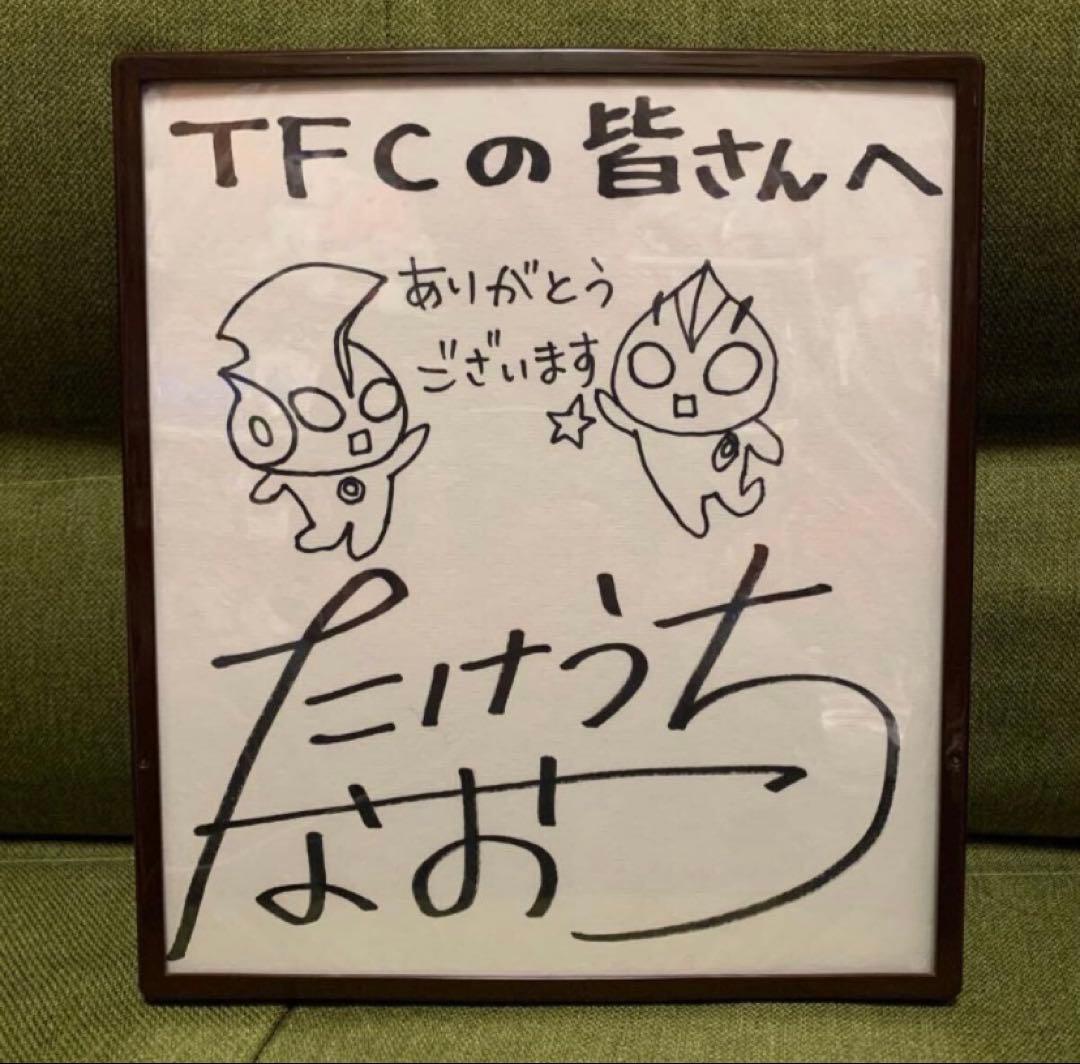 TFCの皆さんへ
ありがとう
ございます
たけうち
なお